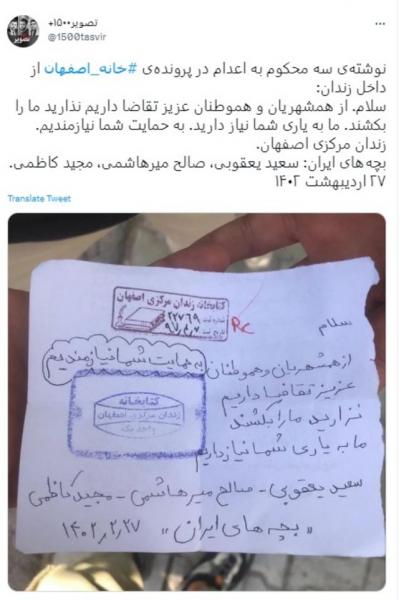 تصویر۱۵۰۰+
@1500tasvir
نوشته‌ی سه محکوم به اعدام در پرونده‌ی #خانه_اصفهان از
داخل زندان:
سلام. از همشهریان و هموطنان عزیز تقاضا داریم نذارید ما را
بکشند. ما به یاری شما نیاز دارید. به حمایت شما نیازمندیم.
زندان مرکزی اصفهان.
بچه‌های ایران: سعید یعقوبی، صالح میرهاشمی، مجید کاظمی.
۲۷ اردیبهشت ۱۴۰۲
Translate Tweet
کتابخانه زندان مرکزی اصفهان
شماره ثبت ۲۲۷۶۹
تاریخ ثبت ۹۷/۰۲/۷
RC
سلام
از همشهریان و هموطنان
به حمایت شما نیازمندیم
عزیز تقاضا داریم
نزارید ما را بکشند
ما به یاری شما نیاز داریم
کتابخانه
زندان مرکزی اصفهان
واحد یک
سعید یعقوبی - صالح میرهاشمی - مجید کاظمی
«بچه های ایران» ۱۴۰۲٫۲٫۲۷